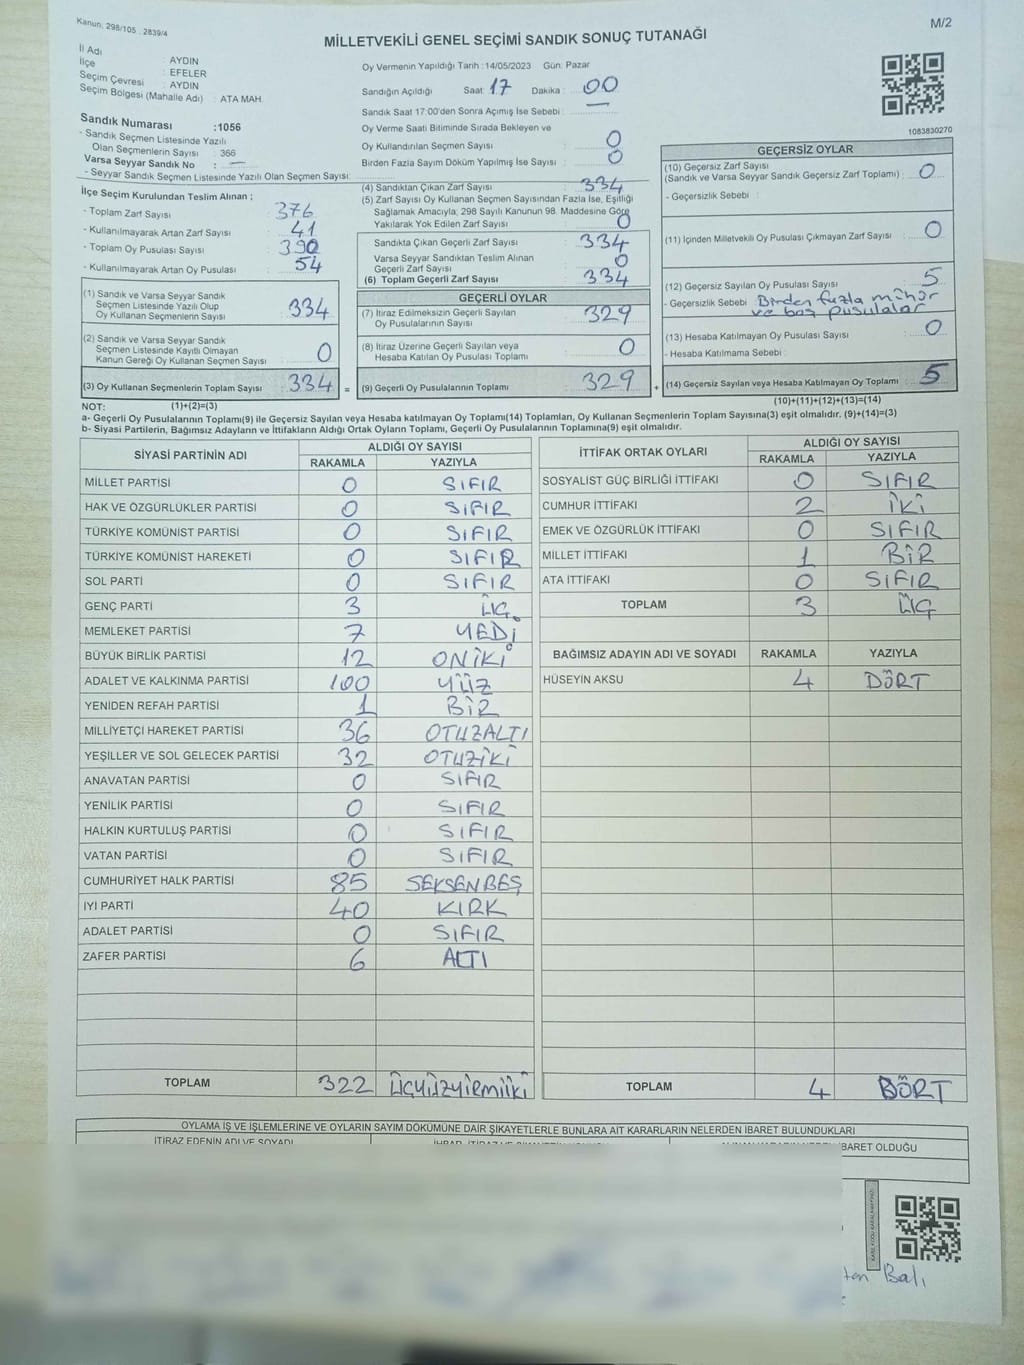 Kanun: 298/105 . 2839/4
M/2
MİLLETVEKİLİ GENEL SEÇİMİ SANDIK SONUÇ TUTANAĞI
İl Adı : AYDIN
İlçe : EFELER
Seçim Çevresi : AYDIN
Seçim Bölgesi (Mahalle Adı) : ATA MAH.
Oy Vermenin Yapıldığı Tarih :14/05/2023 Gün: Pazar
Sandığın Açıldığı Saat: 17 Dakika : 00
Sandık Saat 17:00'den Sonra Açımış İse Sebebi : —
Oy Verme Saati Bitiminde Sırada Bekleyen ve
Oy Kullandırılan Seçmen Sayısı : 0
Birden Fazla Sayım Döküm Yapılmış İse Sayısı : 0
1083830270
Sandık Numarası :1056
- Sandık Seçmen Listesinde Yazılı
Olan Seçmenlerin Sayısı : 366
Varsa Seyyar Sandık No : —
- Seyyar Sandık Seçmen Listesinde Yazılı Olan Seçmen Sayısı:
İlçe Seçim Kurulundan Teslim Alınan ;
- Toplam Zarf Sayısı : 376
- Kullanılmayarak Artan Zarf Sayısı : 41
- Toplam Oy Pusulası Sayısı : 390
- Kullanılmayarak Artan Oy Pusulası : 54
(1) Sandık ve Varsa Seyyar Sandık
Seçmen Listesinde Yazılı Olup
Oy Kullanan Seçmenlerin Sayısı : 334
(2) Sandık ve Varsa Seyyar Sandık
Seçmen Listesinde Kayıtlı Olmayan
Kanun Gereği Oy Kullanan Seçmen Sayısı : 0
(3) Oy Kullanan Seçmenlerin Toplam Sayısı : 334 =
(1)+(2)=(3)
(4) Sandıktan Çıkan Zarf Sayısı : 334
(5) Zarf Sayısı Oy Kullanan Seçmen Sayısından Fazla İse, Eşitliği
Sağlamak Amacıyla; 298 Sayılı Kanunun 98. Maddesine Göre
Yakılarak Yok Edilen Zarf Sayısı : 0
Sandıkta Çıkan Geçerli Zarf Sayısı : 334
Varsa Seyyar Sandıktan Teslim Alınan
Geçerli Zarf Sayısı : 0
(6) Toplam Geçerli Zarf Sayısı : 334
GEÇERLİ OYLAR
(7) İtiraz Edilmeksizin Geçerli Sayılan
Oy Pusulalarının Sayısı : 329
(8) İtiraz Üzerine Geçerli Sayılan veya
Hesaba Katılan Oy Pusulası Toplamı : 0
(9) Geçerli Oy Pusulalarının Toplamı : 329 +
GEÇERSİZ OYLAR
(10) Geçersiz Zarf Sayısı
(Sandık ve Varsa Seyyar Sandık Geçersiz Zarf Toplamı) : 0
- Geçersizlik Sebebi :
(11) İçinden Milletvekili Oy Pusulası Çıkmayan Zarf Sayısı : 0
(12) Geçersiz Sayılan Oy Pusulası Sayısı : 5
- Geçersizlik Sebebi : Birden fazla mühür
ve boş pusulalar
(13) Hesaba Katılmayan Oy Pusulası Sayısı : 0
- Hesaba Katılmama Sebebi :
(14) Geçersiz Sayılan veya Hesaba Katılmayan Oy Toplamı : 5
(10)+(11)+(12)+(13)=(14)
NOT:
a- Geçerli Oy Pusulalarının Toplamı(9) ile Geçersiz Sayılan veya Hesaba katılmayan Oy Toplamı(14) Toplamları, Oy Kullanan Seçmenlerin Toplam Sayısına(3) eşit olmalıdır. (9)+(14)=(3)
b- Siyasi Partilerin, Bağımsız Adayların ve İttifakların Aldığı Ortak Oyların Toplamı, Geçerli Oy Pusulalarının Toplamına(9) eşit olmalıdır.
SİYASİ PARTİNİN ADI ALDIĞI OY SAYISI
RAKAMLA YAZIYLA
MİLLET PARTİSİ 0 SIFIR
HAK VE ÖZGÜRLÜKLER PARTİSİ 0 SIFIR
TÜRKİYE KOMÜNİST PARTİSİ 0 SIFIR
TÜRKİYE KOMÜNİST HAREKETİ 0 SIFIR
SOL PARTİ 0 SIFIR
GENÇ PARTİ 3 ÜÇ
MEMLEKET PARTİSİ 7 YEDİ
BÜYÜK BİRLİK PARTİSİ 12 ONİKİ
ADALET VE KALKINMA PARTİSİ 100 YÜZ
YENİDEN REFAH PARTİSİ 1 BİR
MİLLİYETÇİ HAREKET PARTİSİ 36 OTUZALTI
YEŞİLLER VE SOL GELECEK PARTİSİ 32 OTUZİKİ
ANAVATAN PARTİSİ 0 SIFIR
YENİLİK PARTİSİ 0 SIFIR
HALKIN KURTULUŞ PARTİSİ 0 SIFIR
VATAN PARTİSİ 0 SIFIR
CUMHURİYET HALK PARTİSİ 85 SEKSENBEŞ
İYİ PARTİ 40 KIRK
ADALET PARTİSİ 0 SIFIR
ZAFER PARTİSİ 6 ALTI
TOPLAM 322 ÜÇYÜZYİRMİİKİ
İTTİFAK ORTAK OYLARI ALDIĞI OY SAYISI
RAKAMLA YAZIYLA
SOSYALIST GÜÇ BİRLİĞİ İTTİFAKI 0 SIFIR
CUMHUR İTTİFAKI 2 İKİ
EMEK VE ÖZGÜRLÜK İTTİFAKI 0 SIFIR
MİLLET İTTİFAKI 1 BİR
ATA İTTİFAKI 0 SIFIR
TOPLAM 3 ÜÇ
BAĞIMSIZ ADAYIN ADI VE SOYADI RAKAMLA YAZIYLA
HÜSEYİN AKSU 4 DÖRT
TOPLAM 4 DÖRT
OYLAMA İŞ VE İŞLEMLERİNE VE OYLARIN SAYIM DÖKÜMÜNE DAİR ŞİKAYETLERLE BUNLARA AİT KARARLARIN NELERDEN İBARET BULUNDUKLARI
İTİRAZ EDENİN ADI VE SOYADI
İBARET OLDUĞU
Balı